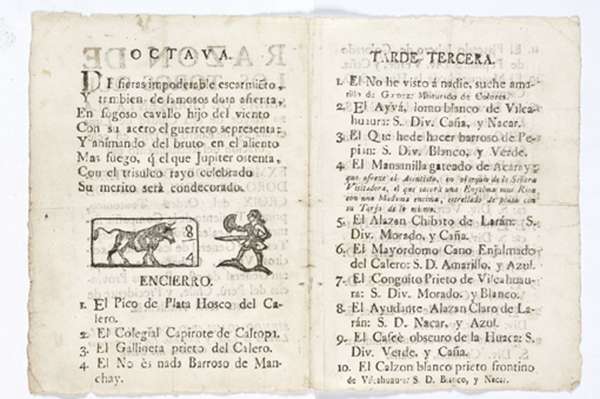 OCTAVA.
DE fieras impoderable escarmiẽto,
Y tambien de famosos dura afrenta,
En fogoso cavallo hijo del viento
Con su acero el guerrero representa:
Y animando del bruto en el aliento
Mas fuego, q̃ el que Jupiter ostenta,
Con el trisulco rayo celebrado
Su merito será condecorado.
8
4
ENCIERRO.
1. El Pico de Plata Hosco del Calero.
2. El Colegial Capirote de Caltopa.
3. El Gallineta prieto del Calero.
4. El No ès nada Barroso de Manchay.
TARDE TERCERA.
1. El No he visto á nadie, suche amarillo de Gomez: Mixturado de Colores.
2. El Ayvá, lomo blanco de Vilcahuaura: S. Div. Caña, y Nacar.
3. El Que hede hacer barroso de Pepian: S. Div. Blanco, y Verde.
4. El Mansanilla gateado de Acaray:
que ofrece el Asentista, en obsequio de la Señora
Visitadora, el que sacará una Enjalma muy Rica
con una Madama encima, estrellada de plata con
su Targa de lo mismo.
5. El Alazan Chibato de Larán: S.
Div. Morado, y Caña.
6. El Mayordomo Cano Enjalmado
del Calero: S. D. Amarillo, y Azul.
7. El Conguito Prieto de Vilcahuaura: S. Div. Morado, y Blanco.
8. El Ayudante Alazan Claro de Larán: S. D. Nacar, y Azul.
9. El Cafeè obscuro de la Huaca: S.
Div. Verde, y Caña.
10. El Calzon blanco prieto frontino
de Vilcahuaura: S. D. Blanco, y Nacar.